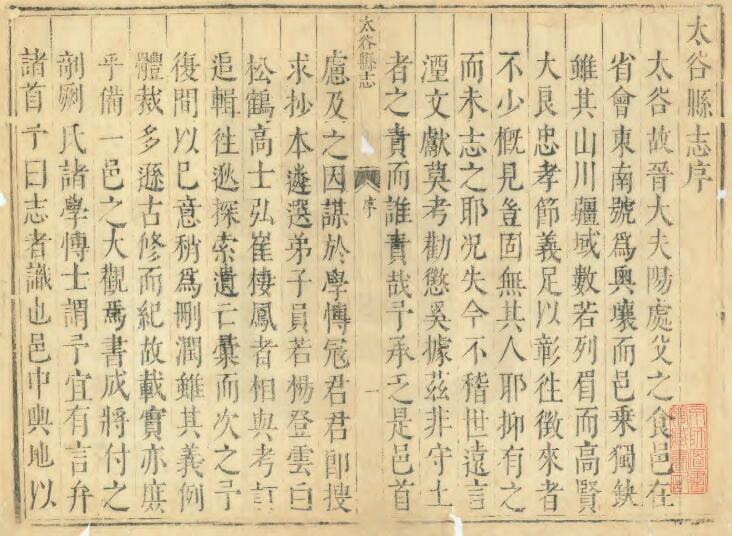 太谷縣志序
太谷故晉大夫陽處父之食邑在
省會東南號爲輿壤而邑乘獨缺
雖其山川疆域數若列眉而高賢
大良忠孝節義足以彰徃徵來者
不少概見豈固無其人耶抑有之
而未志之耶况失今不稽世遠言
湮文獻莫考勸懲奚據茲非守土
者之責而誰責哉予承乏是邑首
太谷縣志
序
一
慮及之因謀於學傅冦君君即搜
求抄本遴選弟子員若楊登雲白
松鶴高士弘崔棲鳳者相與考訂
追輯徃迹探索遺亡彙而次之予
復間以已意稍爲刪潤雖其義例
體裁多遜古修而紀故載實亦庶
乎備一邑之大觀焉書成將付之
剞劂氏諸學博士謂予宜有言弁
諸首予曰志者識也邑中輿地以